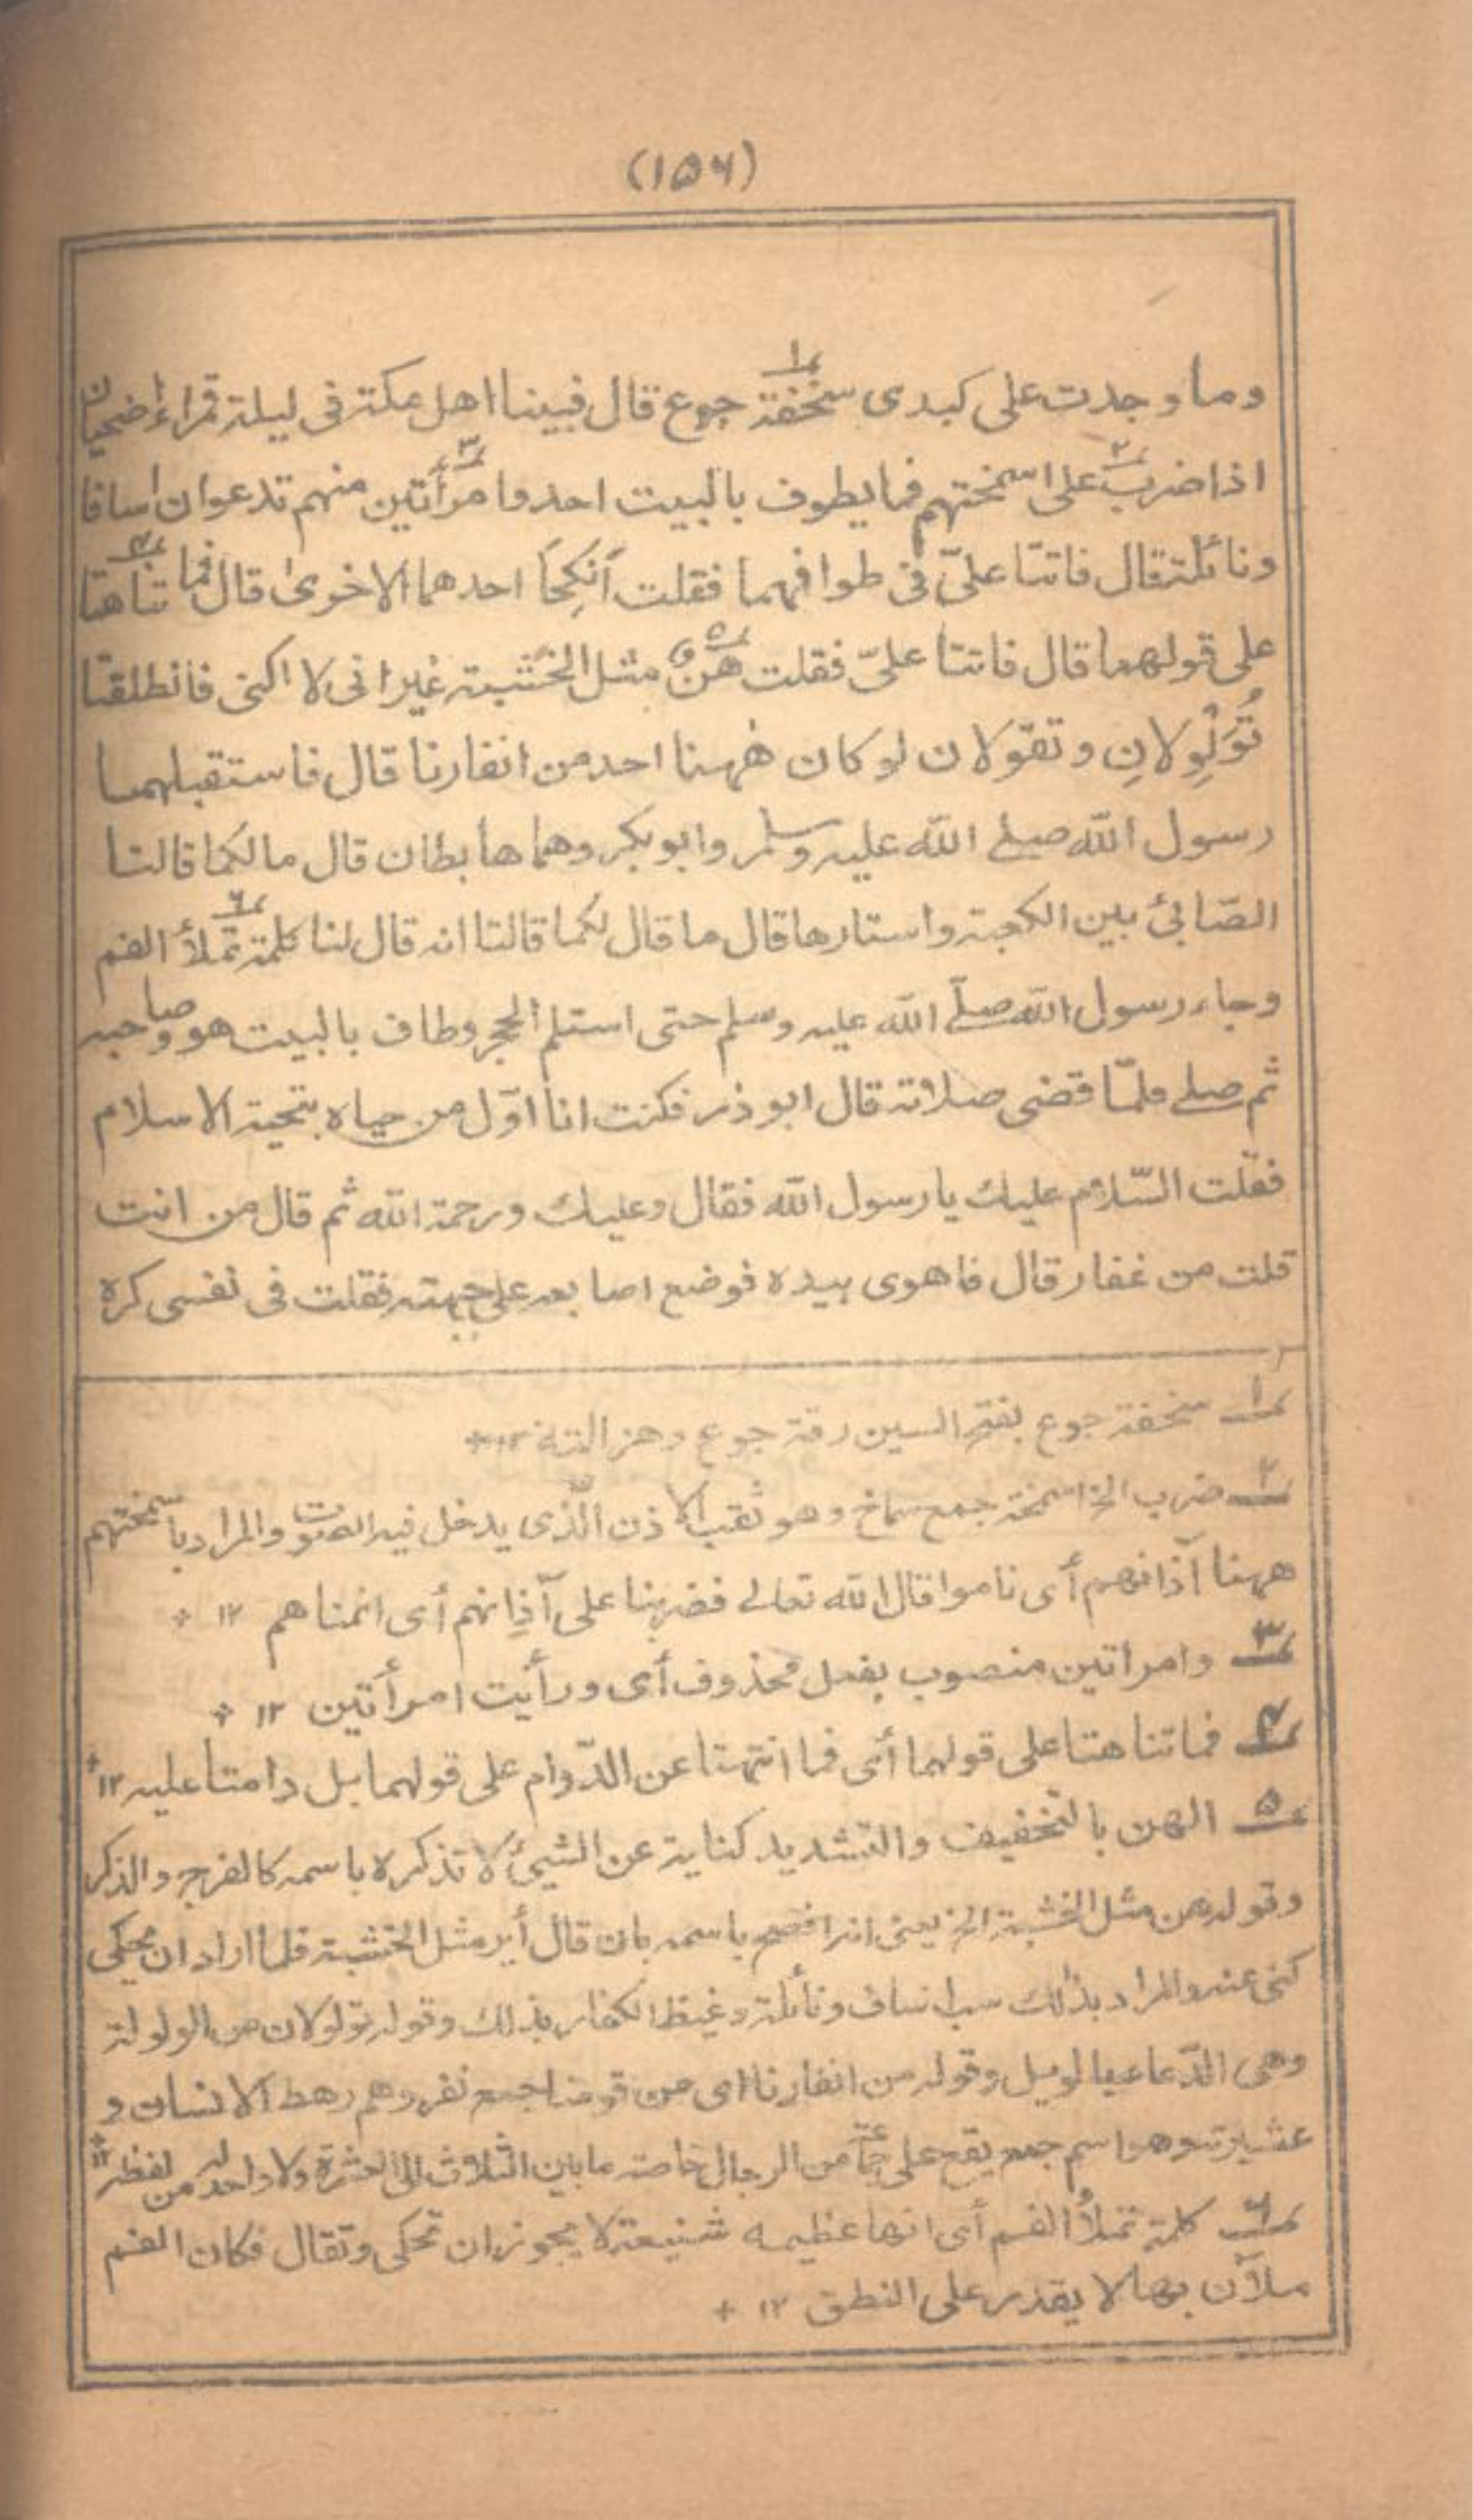 (١٥٦)
وما وجدت على كبدى سخفة جوع قال فبينا اهل مكة فى ليلة قمراء اضحيان
اذا ضرب على اسمختهم فما يطوف بالبيت احد وامرأتين منهم تدعوان اسافا
ونائلة قال فاتتا علىّ فى طوافهما فقلت أنكِحَا احدهما الاخرىٰ قال فما تناهتا
على قولهما قال فاتتا علىّ فقلت هنٌ مثل الخشبة غير انى لا اكنى فانطلقتا
تُوَلْوِلانِ وتقولان لو كان هٰهنا احد من انفارنا قال فاستقبلهما
رسول الله صلى الله عليه وسلم وابو بكر وهما هابطان قال مالكما قالتا
الصّابئ بين الكعبة واستارها قال ما قال لكما قالتا انه قال لنا كلمة تملأ الفم
وجاء رسول الله صلى الله عليه وسلم حتى استلم الحجر وطاف بالبيت هو وصاحبه
ثم صلى فلمّا قضى صلاته قال ابو ذر فكنت انا اوّل من حياه بتحية الاسلام
فقلت السّلام عليك يا رسول الله فقال وعليك ورحمة الله ثم قال من انت
قلت من غفار قال فاهوى بيده فوضع اصابعه على جبهته فقلت فى نفسى كره
١ سخفة جوع بفتح السين رقة جوع وهزالته ١٢ +
٢ ضرب الخ اسمخة جمع سماخ وهو ثقب الاذن الّذى يدخل فيه الصّوت والمراد باسمختهم
ههنا آذانهم أى ناموا قال الله تعالى فضربنا على آذانهم أى انمناهم ١٢ +
٣ وامرأتين منصوب بفعل محذوف أى ورأيت امرأتين ١٢ +
٤ فما تناهتا على قولهما أى فما انتهتا عن الدّوام على قولهما بل دامتا عليه ١٢ +
٥ الهن بالتخفيف والتشديد كناية عن الشيئ لا تذكره باسمه كالفرج والذكر
وقوله هن مثل الخشبة الخ يعنى انه افصح باسمه بان قال أير مثل الخشبة فلما اراد ان يحكى
كنى عنه والمراد بذالك سب اساف ونائلة وغيظ الكفار بذلك وقوله تولولان من الولولة
وهى الدّعاء بالويل وقوله من انفارنا اى من قومنا جمع نفر وهم رهط الانسان و
عشيرته وهو اسم جمع يقع على جماعة من الرجال خاصة ما بين الثلاث الى العشرة ولا واحد له من لفظه ١٢ +
٦ كلمة تملأ الفم أى انها عظيمه شنيعة لا يجوز ان تحكى وتقال فكان الفم
ملآن بها لا يقدر على النطق ١٢ +